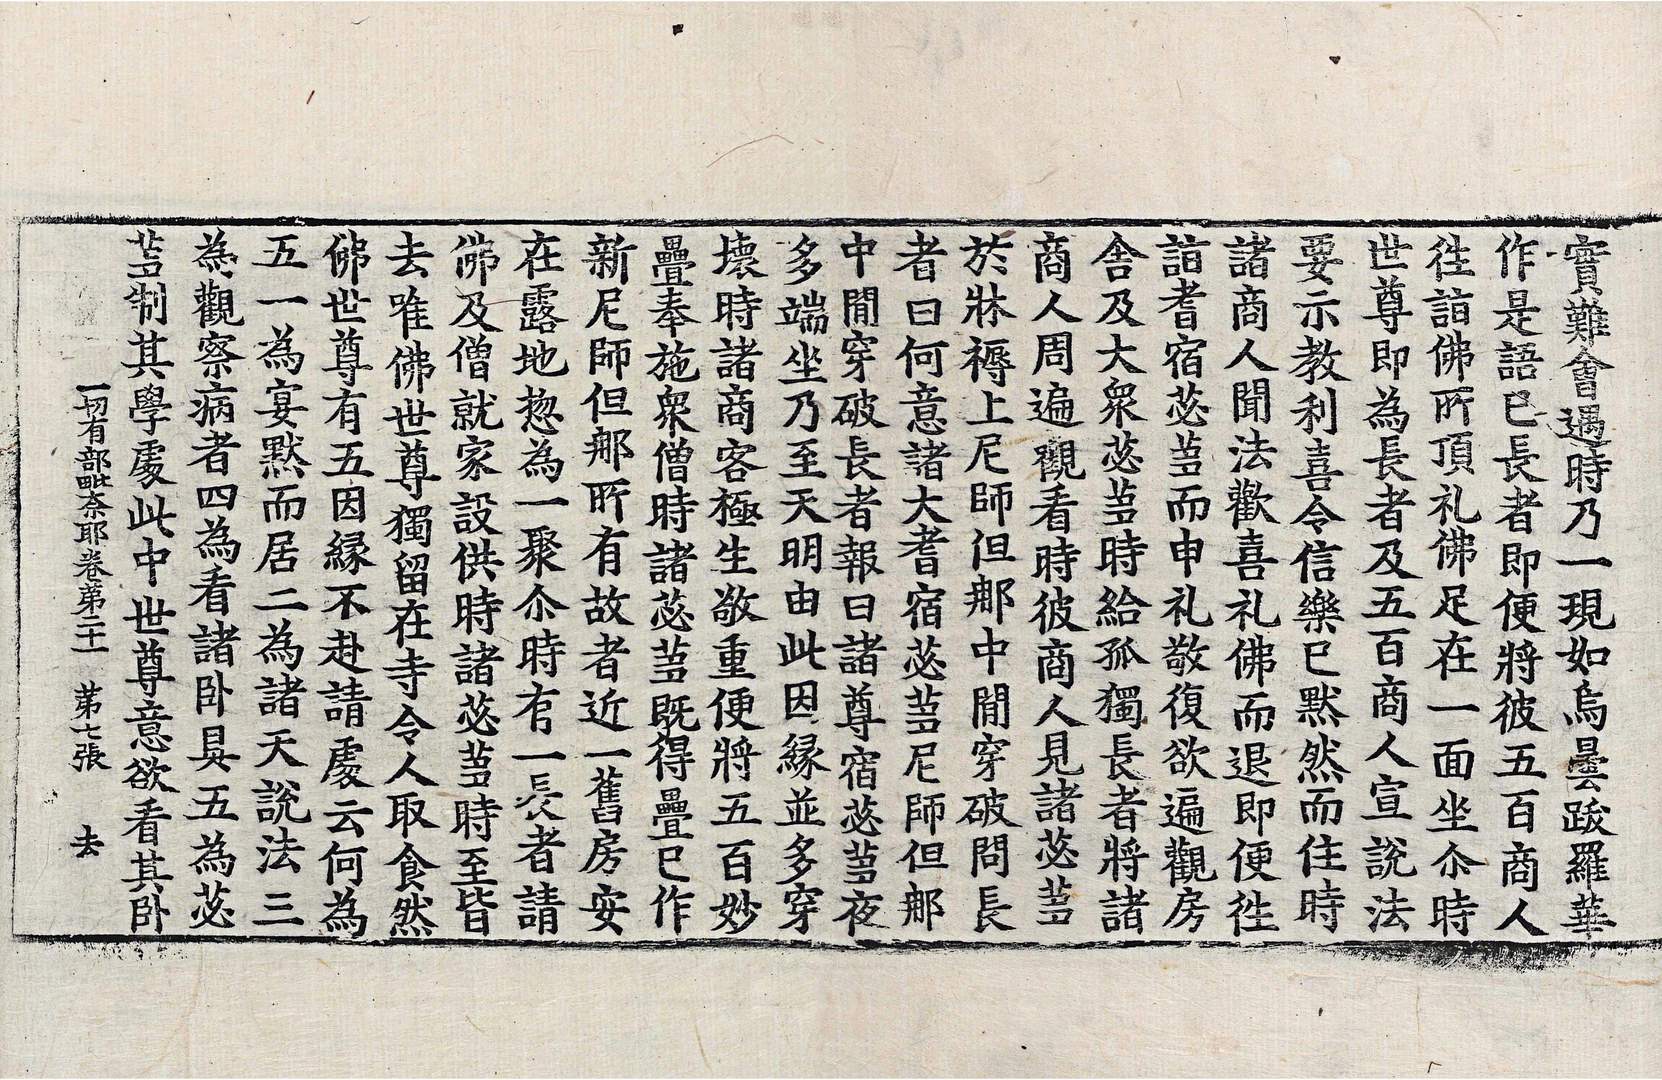 實難會遇時乃一現如烏曇跋羅華
作是語已長者即便將彼五百商人
徃詣佛所頂礼佛足在一面坐尒時
世尊即為長者及五百商人宣說法
要示教利喜令信樂已默然而住時
諸商人聞法歡喜礼佛而退即便徃
詣耆宿苾蒭而申礼敬復欲遍觀房
舍及大衆苾蒭時給孤獨長者將諸
商人周遍觀看時彼商人見諸苾蒭
於牀褥上尼師但那中閒穿破問長
者曰何意諸大耆宿苾蒭尼師但那
中閒穿破長者報曰諸尊宿苾蒭夜
多端坐乃至天明由此因縁並多穿
壞時諸商客極生敬重便將五百妙
疊奉施衆僧時諸苾蒭旣得疊已作
新尼師但那所有故者近一舊房安
在露地惣為一聚尒時有一長者請
佛及僧就家設供時諸苾蒭時至皆
去唯佛世尊獨留在寺令人取食然
佛世尊有五因縁不赴請處云何為
五一為宴默而居二為諸天說法三
為觀察病者四為看諸卧具五為苾
蒭制其學處此中世尊意欲看其卧
一切有部毗奈耶卷第二十一　第七張　去